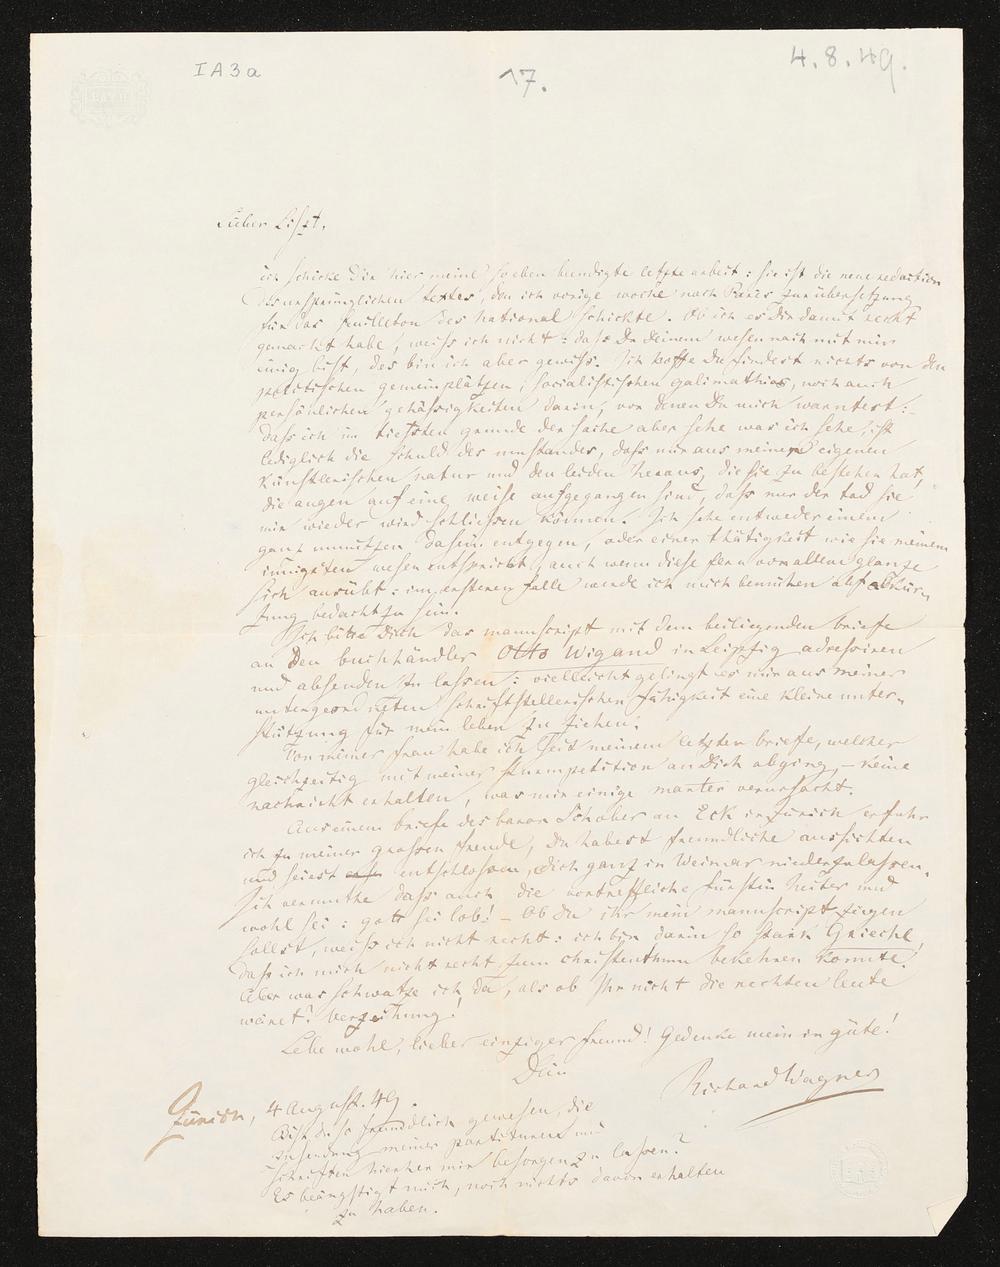 IA3a
17.
4.8.49.
Lieber Liszt,
ich schicke Dir hier meine soeben beendigte letzte arbeit: sie ist die neue redaction
des ursprünglichen textes, den ich vorige woche nach Paris zur übersetzung
für das feuilleton des National schickte. Ob ich es Dir damit recht
gemacht habe, weiss ich nicht: dass Du Deinem wesen nach mit mir
einig bist, des bin ich aber gewiss. Ich hoffe Du findest nichts von den
politischen gemeinplätzen, socialistischen galimathias, noch auch
persönlichen gehässigkeiten darin, vor denen Du mich warntest:
dass ich im tiefsten grunde der sache aber sehe was ich sehe, ist
lediglich die schuld des umstandes, dass mir aus meiner eigenen
künstlerischen natur und den leiden heraus, die sie zu bestehen hat,
die augen auf eine weise aufgegangen sind, dass nur der tod sie
mir wieder wird schliessen können. Ich sehe entweder einem
ganz unnützen dasein entgegen, oder einer thätigkeit wie sie meinem
innigsten wesen entspricht, auch wenn diese fern von allem glanze
sich ausübt: im ersteren falle werde ich mich bemühen auf abkür-
zung bedacht zu sein.
Ich bitte Dich das manuscript mit dem beiliegenden briefe
an den buchhändler Otto Wigand in Leipzig adressiren
und absenden zu lassen: vielleicht gelingt es mir aus meiner
untergeordneten schriftstellerischen fähigkeit eine kleine unter-
stützung für mein leben zu ziehen.
Von meiner frau habe ich seit meinem letzten briefe, welcher
gleichzeitig mit meiner an Dich abging, – keine
nachricht erhalten, was mir einige marter verursacht.
Aus einem briefe des baron Schober an Eck in Zürich erfuhr
ich zu meiner grossen freude, Du habest freundliche aussichten
und seiest entschlossen, dich ganz in Weimar niederzulassen.
Ich vermuthe dass auch die vortreffliche fürstin heiter und
wohl sei: gott sei lob! – Ob Du ihr mein manuscript zeigen
sollst, weiss ich nicht recht: ich bin darin so stark Grieche,
dass ich mich nicht recht zum christenthum bekehren konnte.
Aber was schwatze ich da, als ob Ihr nicht die rechten leute
wäret! Verzeihung!
Lebe wohl, lieber einziger freund! Gedenke mein in güte!
Dein
Richard Wagner
Zürich, 4 August. 49.
Bist du so freundlich gewesen, die
zusendung meiner partituren und
schriften hierher mir besorgen zu lassen?
Es beängstigt mich, noch nichts davon erhalten
zu haben.